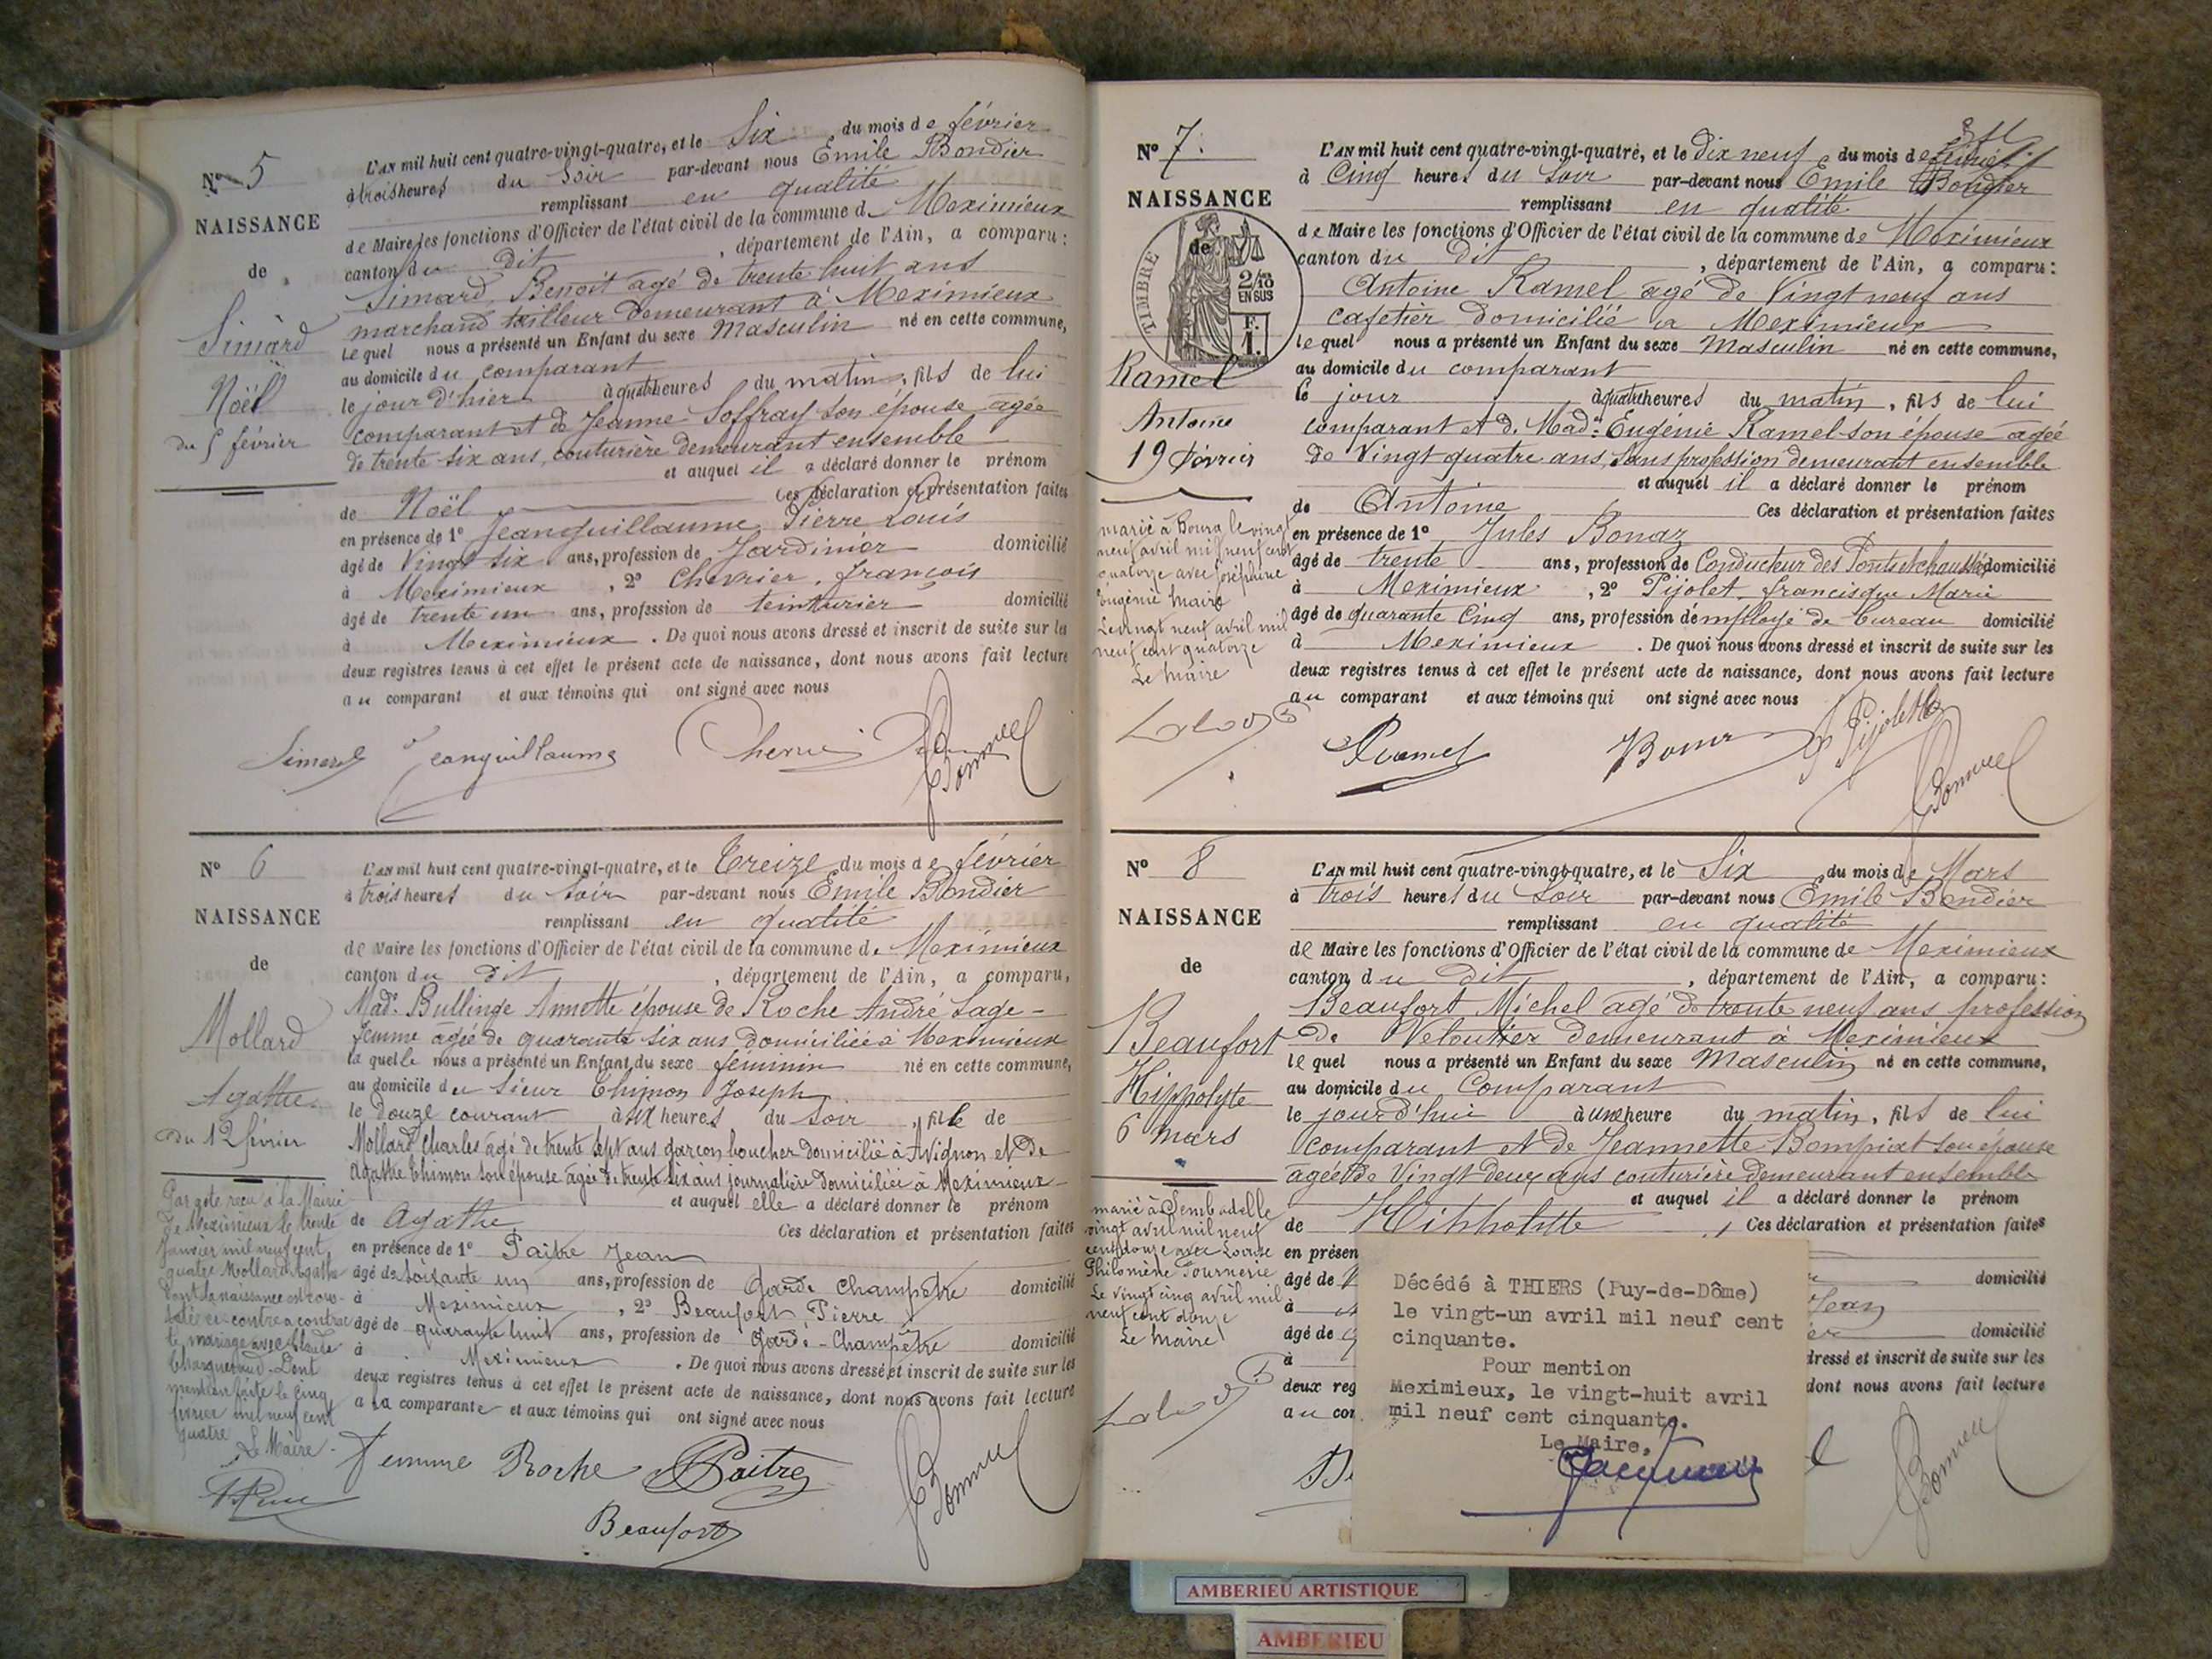 N° 5
NAISSANCE
de
Simard
Noël
du 5 février
L'AN mil huit cent quatre-vingt-quatre, et le Six du mois de février
à trois heures du soir par-devant nous Emile Bondier
remplissant en qualité
de Maire les fonctions d'Officier de l'état civil de la commune de Meximieux
canton du dit, département de l'Ain, a comparu:
Simard, Benoît agé de trente huit ans
marchand tailleur demeurant à Meximieux
Lequel nous a présenté un Enfant du sexe Masculin né en cette commune,
au domicile du comparant
le jour d'hier à quatre heures du matin, fils de lui
comparant et de Jeanne Soffray son épouse agée
de trente six ans, couturière demeurant ensemble
et auquel il a déclaré donner le prénom
de Noël Ces déclaration et présentation faites
en présence de 1° Jeanguillaume, Pierre Louis
âgé de Vingt six ans, profession de Jardinier domicilié
à Meximieux, 2° Chevrier, François
âgé de trente un ans, profession de teinturier domicilié
à Meximieux. De quoi nous avons dressé et inscrit de suite sur les
deux registres tenus à cet effet le présent acte de naissance, dont nous avons fait lecture
au comparant et aux témoins qui ont signé avec nous
Simard Jeanguillaume
N° 6
NAISSANCE
de
Mollard
Agathe
du 12 février
L'AN mil huit cent quatre-vingt-quatre, et le Treize du mois de février
à trois heures du soir par-devant nous Emile Bondier
remplissant en qualité
de Maire les fonctions d'Officier de l'état civil de la commune de Meximieux
canton du dit, département de l'Ain, a comparu,
Made Bullinge Annette épouse de Roche André Sage-
femme agée de quarante six ans domiciliée à Meximieux
laquelle nous a présenté un Enfant du sexe féminin né en cette commune,
au domicile du sieur Thimon Joseph
le douze courant à six heures du soir, fille de
Mollard Charles agé de trente sept ans garçon boucher domicilié à Avignon et de
Agathe Thimon son épouse agée de trente six ans journalière domiciliée à Meximieux
et auquel elle a déclaré donner le prénom
de Agathe Ces déclaration et présentation faites
en présence de 1° Paitre Jean
âgé de soixante un ans, profession de Garde champêtre domicilié
à Meximieux, 2° Beaufort Pierre
âgé de quarante huit ans, profession de Garde-Champêtre domicilié
à Meximieux. De quoi nous avons dressé et inscrit de suite sur les
deux registres tenus à cet effet le présent acte de naissance, dont nous avons fait lecture
a la comparante et aux témoins qui ont signé avec nous
Par acte reçu à la Mairie
de Meximieux le trente
janvier mil neuf cent
quatre Mollard Agathe
dont la naissance est cons-
tatée ci-contre a contrac-
té mariage avec Claude
Dont
mention faite le cinq
février mil neuf cent
quatre
Le Maire
femme Roche Paitre
Beaufort
N° 7.
NAISSANCE
de
TIMBRE
2/10
EN SUS
F.
1.
Ramel
Antoine
19 février
L'AN mil huit cent quatre-vingt-quatre, et le dix neuf du mois de février
à Cinq heures du soir par-devant nous Emile Bondier
remplissant en qualité
de Maire les fonctions d'Officier de l'état civil de la commune de Meximieux
canton du dit, département de l'Ain, a comparu:
Antoine Ramel agé de Vingt neuf ans
cafetier domicilié à Meximieux
lequel nous a présenté un Enfant du sexe Masculin né en cette commune,
au domicile du comparant
le jour à quatre heures du matin, fils de lui
comparant et de Made Eugénie Ramel son épouse agée
de Vingt quatre ans, sans profession demeurant ensemble
et auquel il a déclaré donner le prénom
de Antoine Ces déclaration et présentation faites
en présence de 1° Jules Bonaz
âgé de trente ans, profession de Conducteur des Ponts et chaussées domicilié
à Meximieux, 2° Pijolet, francisque Marie
âgé de quarante Cinq ans, profession d'employé de bureau domicilié
à Meximieux. De quoi nous avons dressé et inscrit de suite sur les
deux registres tenus à cet effet le présent acte de naissance, dont nous avons fait lecture
au comparant et aux témoins qui ont signé avec nous
marié à Bourg le vingt
neuf avril mil neuf cent
quatorze avec Joséphine
Eugénie Maire
Le vingt neuf avril mil
neuf cent quatorze
Le Maire
Ramel
N° 8
NAISSANCE
de
Beaufort
Hippolyte
6 mars
L'AN mil huit cent quatre-vingt-quatre, et le Six du mois de Mars
à trois heures du soir par-devant nous Emile Bondier
remplissant en qualité
de Maire les fonctions d'Officier de l'état civil de la commune de Meximieux
canton du dit, département de l'Ain, a comparu:
Beaufort Michel agé de trente neuf ans profession
de Veloutier demeurant à Meximieux
lequel nous a présenté un Enfant du sexe Masculin né en cette commune,
au domicile du Comparant
le jour d'hui à une heure du matin, fils de lui
comparant et de Jeannette Bompiat son épouse
agée de Vingt-deux ans couturière demeurant ensemble
et auquel il a déclaré donner le prénom
de Hippolyte, Ces déclaration et présentation faites
en présen
âgé de domicilié
à Jean
âgé de domicilié
à dressé et inscrit de suite sur les
deux reg dont nous avons fait lecture
au com
marié à Sembadelle
vingt avril mil neuf
cent douze avec Louise
Philomène Tournerie
Le vingt cinq avril mil
neuf cent douze
Le Maire
Décédé à THIERS (Puy-de-Dôme)
le vingt-un avril mil neuf cent
cinquante.
Pour mention
Meximieux, le vingt-huit avril
mil neuf cent cinquante.
Le Maire,
AMBERIEU ARTISTIQUE
AMBERIEU